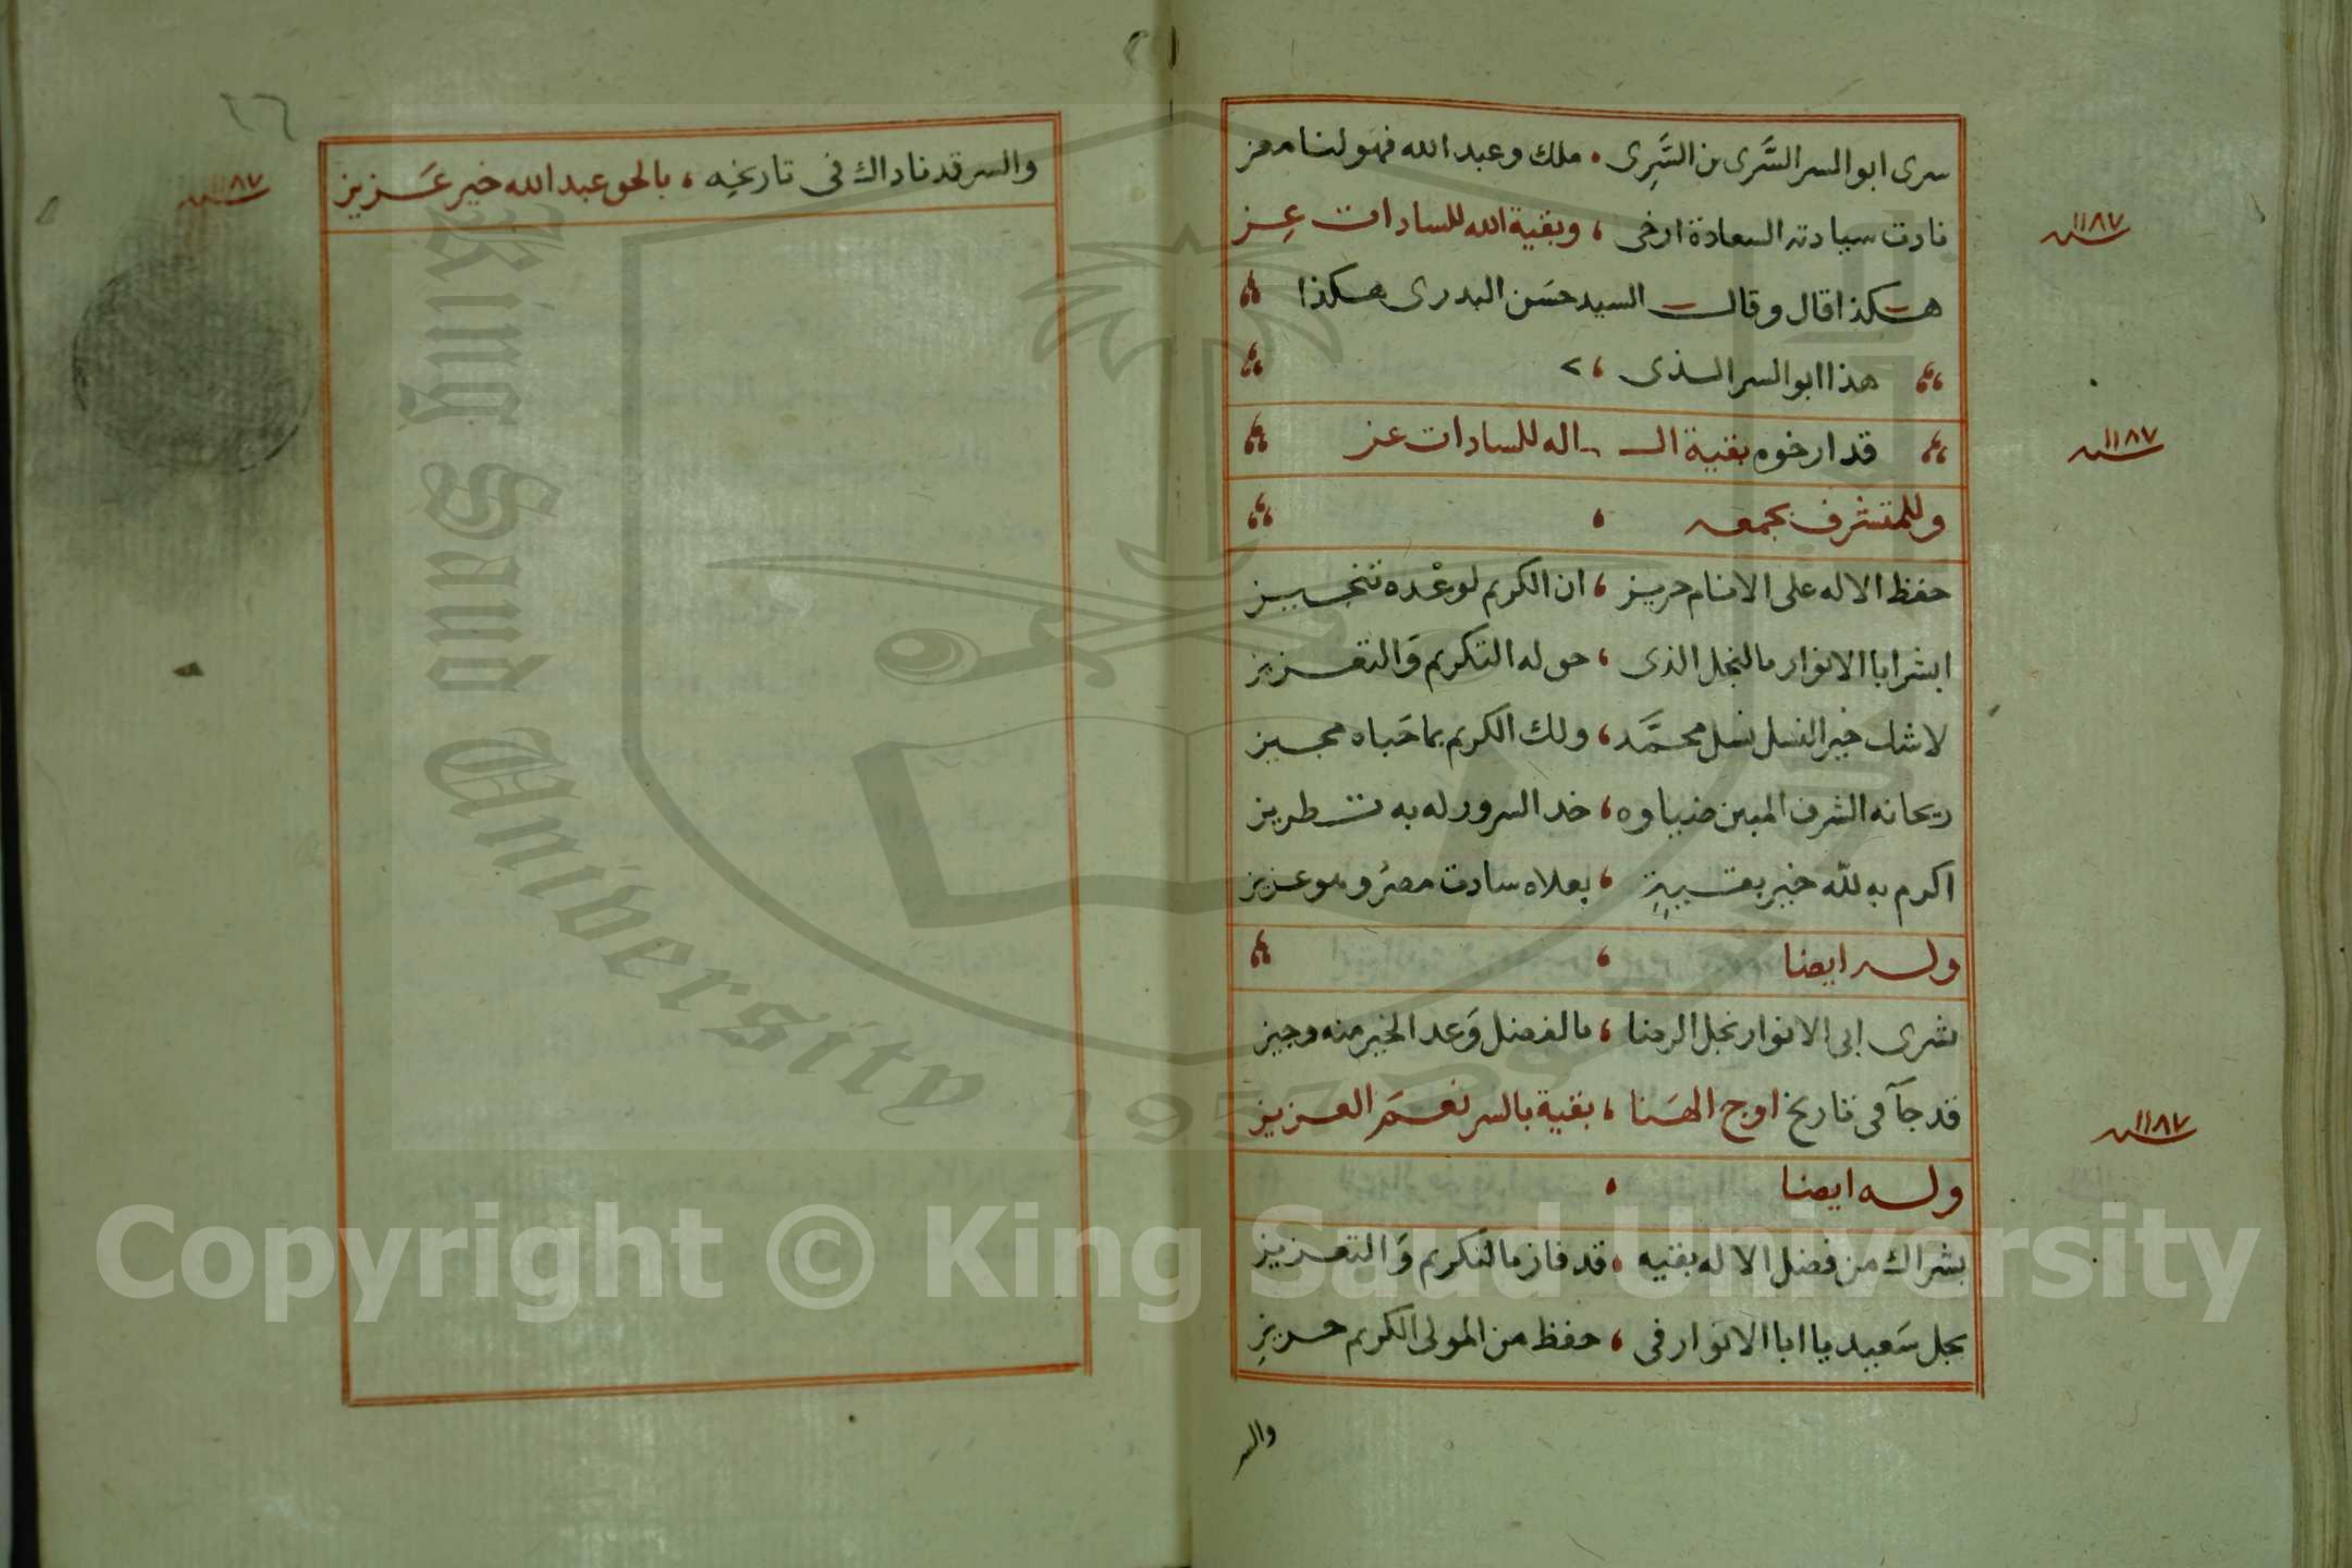 سرى ابو السر السَّرى من السَّرِى ، ملك وعبد الله فهو لنا معز
نادت سيادته السعادة ارخى ، وبقية الله للسادات عِز
سنة ١١٨٧
هكذا قال وقال السيد حسَن البدرى هكذا
هذا ابو السر الذى ،
قد ارخوه بقية الـ ـاله للسادات عز
سنة ١١٨٧
وللمتشرف بجمعه ،
حفظ الاله على الانام حريز ، ان الكريم لوعْده تنجيز
ابشر ابا الانوار بالنجل الذى ، حق له التكريم وَالتعزيز
لا شك خير النسل نسل محمَّد ، ولك الكريم بما حَباه مجيز
ريحانه الشرف المبين ضياوه ، خد السرور له به تطريز
اكرم به لله خير بقيةٍ ، بعلاه سادت مصرُ وهو عزيز
وله ايضا ،
بشرى ابى الانوار نجل الرضا ، بالفضل وَعد الخير منه وجيز
قد جآ فى تاريخ اوج الهَنا ، بقية بالسر نعمَ العزيز
سنة ١١٨٧
وله ايضا ،
بشراك من فضل الاله بقيه ، قد فاز بالتكريم وَالتعزيز
نجل سَعيد يا ابا الانوار فى ، حفظ من المولى الكريم حريزِ
والسر
٢٦
والسر قد ناداك فى تاريخِه ، بالحق عبد الله خير عَزيز
سنة ١١٨٧
King Saud University
1957
Copyright © King Saud University